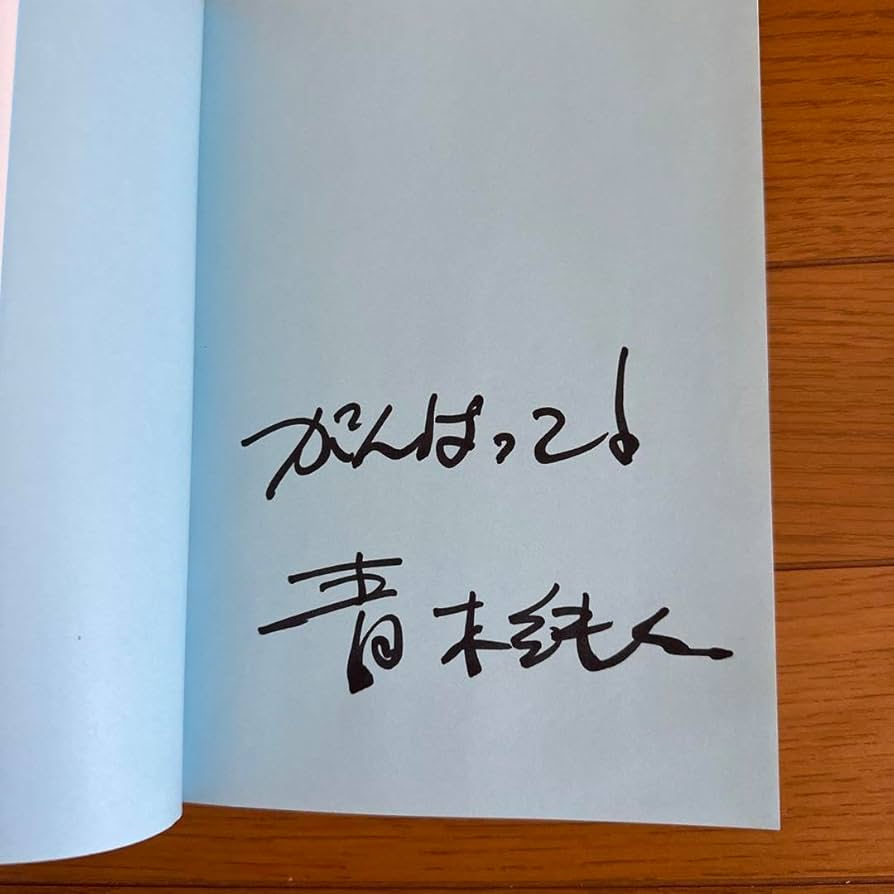 がんばって!
青木純人